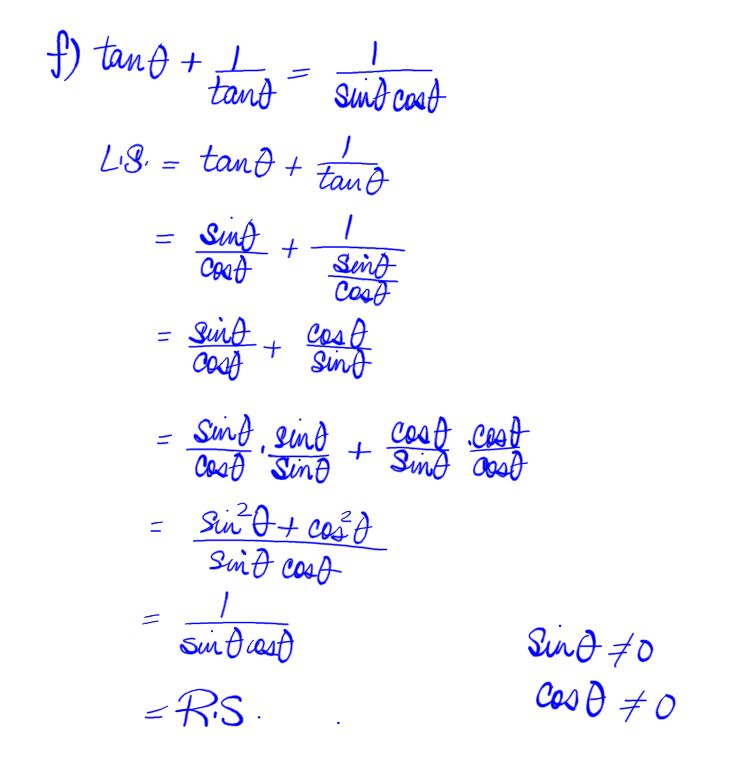 f) tanθ + 1/tanθ = 1/(sinθ cosθ)
L.S. = tanθ + 1/tanθ
= sinθ/cosθ + 1/(sinθ/cosθ)
= sinθ/cosθ + cosθ/sinθ
= sinθ/cosθ · sinθ/sinθ + cosθ/sinθ · cosθ/cosθ
= (sin²θ + cos²θ)/(sinθ cosθ)
= 1/(sinθ cosθ)
sinθ ≠ 0
= R.S.
cosθ ≠ 0